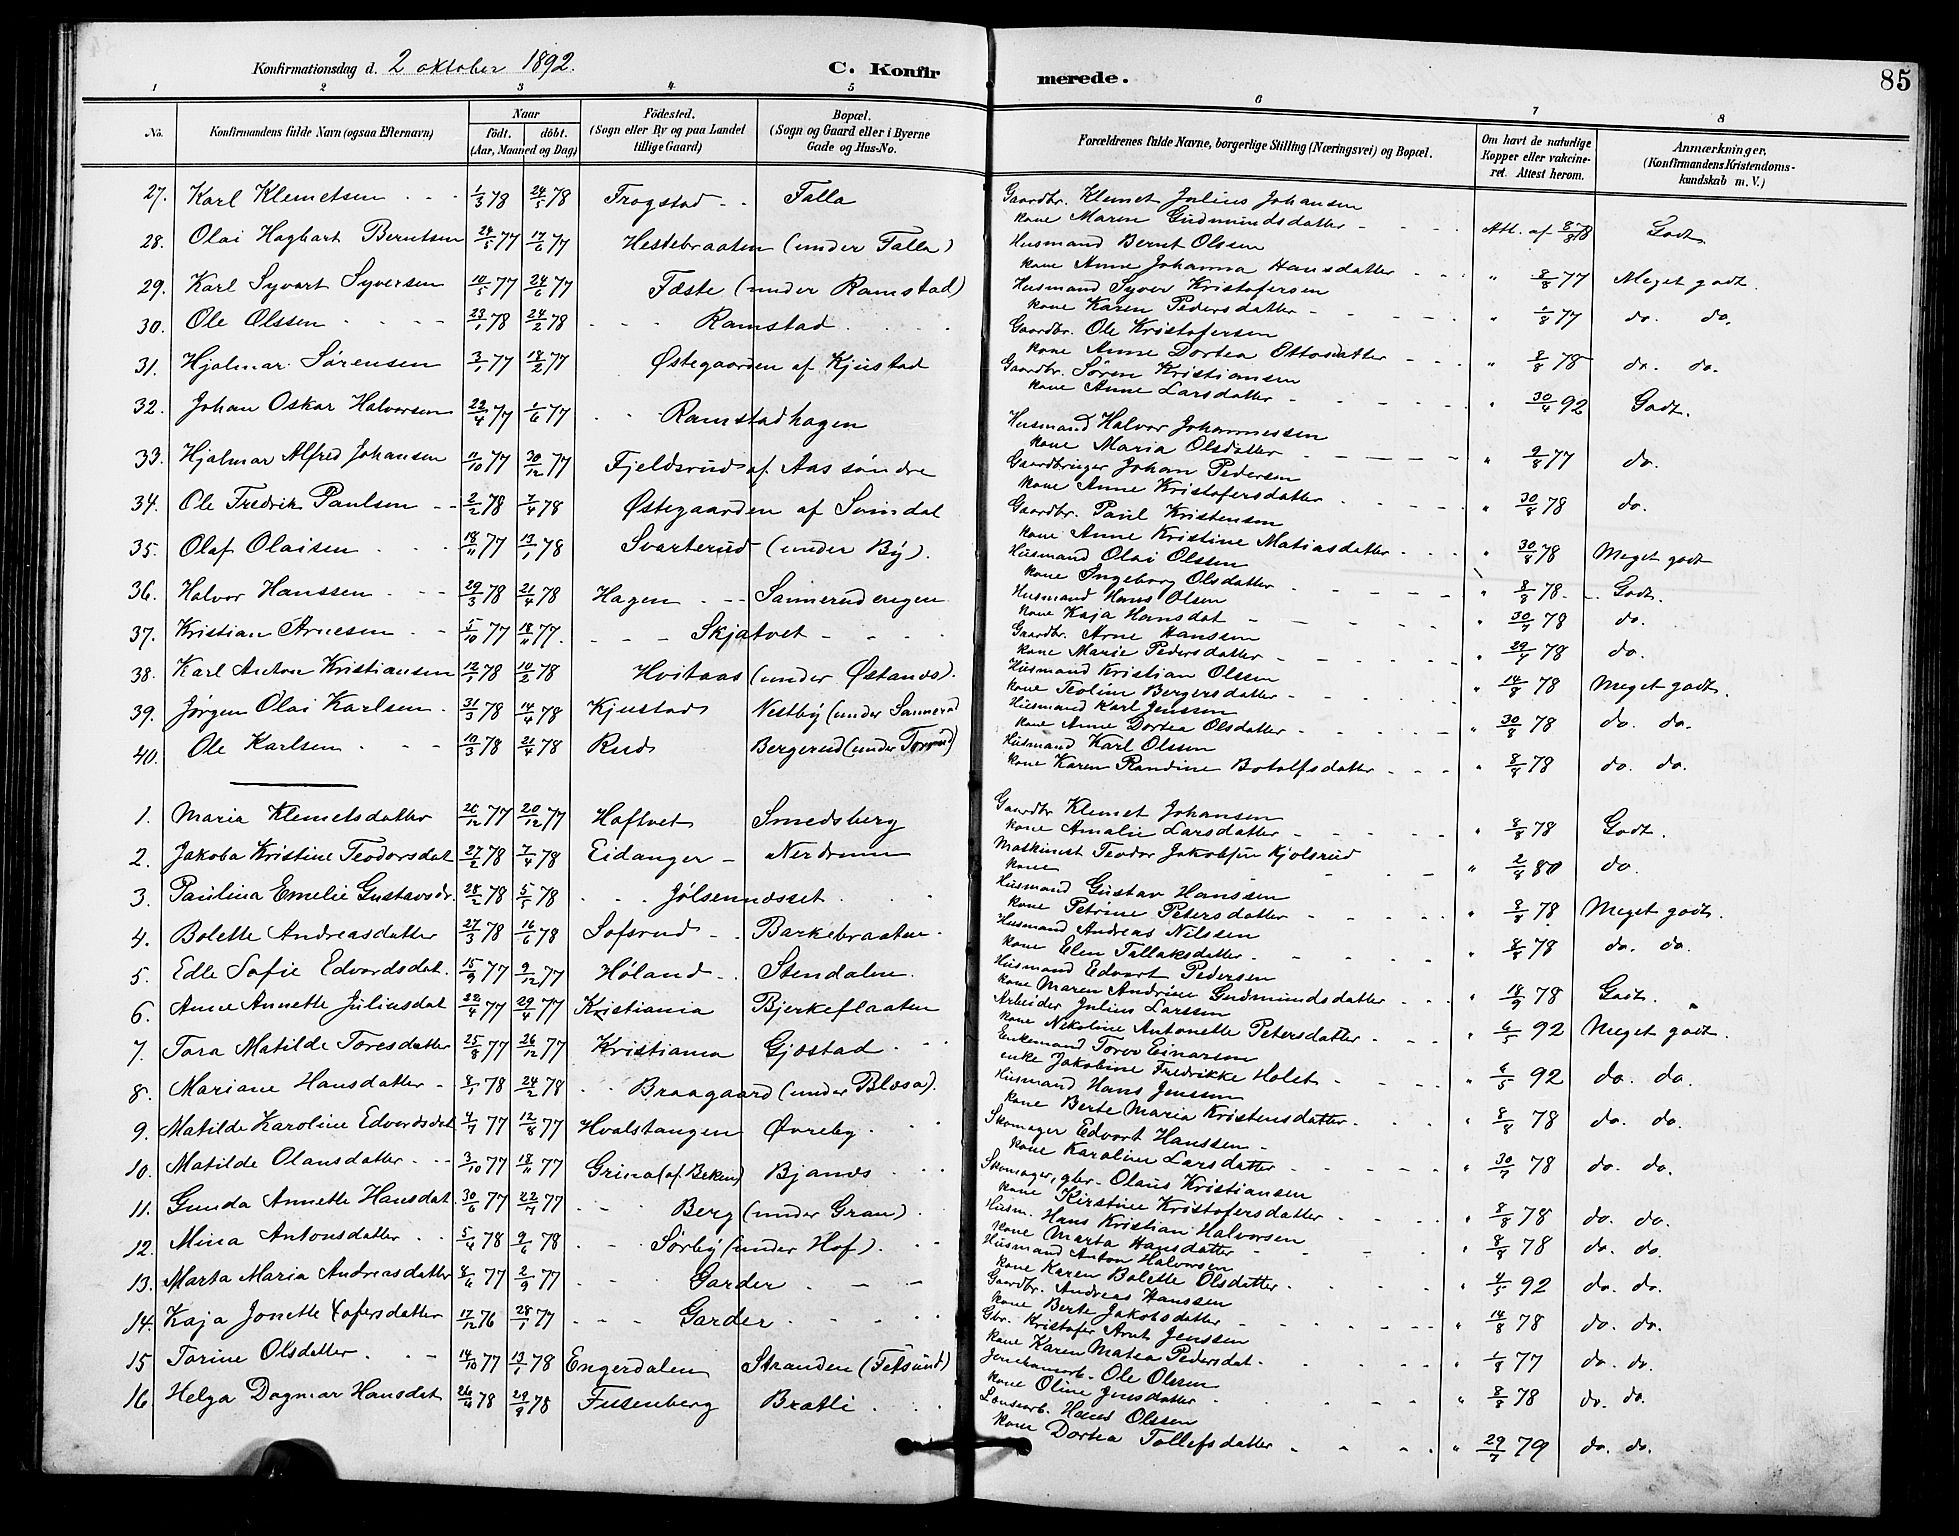 Konfirmationsdag d. 2 oktober 1892.
C. Konfirmerede.
85
1 2 3 4 5 6 7 8
No.
Konfirmandens fulde Navn (ogsaa Efternavn)
Naar
födt. döbt.
(Aar, Maaned og Dag)
Födested.
(Sogn eller By og paa Landet
tillige Gaard)
Bopæl.
(Sogn og Gaard eller i Byerne
Gade og Hus-No.
Forældrenes fulde Navne, borgerlige Stilling (Næringsvei) og Bopæl.
Om havt de naturlige
Kopper eller vakcine-
ret. Attest herom.
Anmærkninger,
(Konfirmandens Kristendoms-
kundskab m. V.)
27. Karl Klemetsen 1/3 78 24/5 78 Trøgstad Falla Gaardbr. Klemet Julius Johansen
kone Maren Gudmundsdatter Att. af 8/8 78 Godt.
28. Olai Hagbart Berntsen 24/5 77 17/6 77 Hestebraaten (under Falla) Husmand Bernt Olssen
kone Anne Johanna Hansdatter " 8/8 77 Meget godt.
29. Karl Syvert Syversen 10/5 77 24/6 77 Fæste (under Ramstad) Husmand Syver Kristofersen
kone Karen Pedersdatter " 1/8 77 do. do.
30. Ole Olssen 23/1 78 24/2 78 Ramstad Gaardbr. Ole Kristofersen
kone Anne Dortea Ottosdatter " 8/8 78 do. do.
31. Hjalmar Sørensen 3/1 77 18/2 77 Østegaarden af Kjustad Gaardbr. Søren Kristiansen
kone Anne Larsdatter " 30/4 92 Godt.
32. Johan Oskar Halvorsen 22/4 77 1/6 77 Ramstadhagen Husmand Halvor Johannessen
kone Maria Olsdatter " 9/8 77 do.
33. Hjalmar Alfred Johansen 11/10 77 30/12 77 Fjeldsrud af Aas søndre Gaardbruger Johan Pedersen
kone Anne Kristofersdatter " 30/8 78 do.
34. Ole Fredrik Paulsen 2/2 78 7/4 78 Østegaarden af Svindal Gaardbr. Paul Kristensen
kone Anne Kristine Matiasdatter " 30/8 78 Meget godt
35. Olaf Olaisen 18/11 77 13/1 78 Svarterud (under By). Husmand Olai Olssen
kone Ingeborg Olsdatter " 8/8 78 Godt.
36. Halvor Hanssen 29/3 78 21/4 78 Hagen Sannerudengen Husmand Hans Olsen
kone Kaja Hansdat " 30/7 78 do.
37. Kristian Arnesen 5/10 77 18/11 77. Skjatvet Gaardbr. Arne Hanssen
kone Marie Pedersdatter " 29/7 78 do.
38. Karl Anton Kristiansen 12/1 78 10/2 78 Hvitaas (under Østands). Husmand Kristian Olsen
kone Teoline Bergersdatter " 14/8 78 Meget godt.
39. Jørgen Olai Karlsen 31/3 78 14/4 78 Kjustad Nestby (under Sannerud Husmand Karl Jenssen
kone Anne Dortea Olsdatter " 30/8 78 do. do.
40. Ole Karlsen 10/3 78 21/4 78 Rud Bergerud (under Torsrud) Husmand Karl Olssen
kone Karen Randine Botolfsdatter " 8/8 78 do. do.
1. Maria Klemetsdatter 77 20/12 77 Haftvet Smedsberg Gaardbr Klemet Johansen
kone Amalie Larsdatter " 8/8 78 Godt.
2. Jakoba Kristine Teodorsdat 27/2 78 7/4 78 Eidanger Nerdrum Maskinist Teodor Jakobsen Kjølsrud
kone " 2/8 80 do.
3. Paulina Emelie Gustavsdr. 28/2 78 5/5 78 Jølsennæsset Husmand Gustav Hanssen
kone Petrine Petersdatter " 8/8 78 Meget godt.
4. Bolette Andreasdatter 27/3 78 16/6 78 Sofsrud Barkebraaten Husmand Andreas Nilssen
kone Elen Tallaksdatter " 8/8 78 do. do.
5. Edle Sofie Edvardsdat. 15/9 77 9/12 77 Høland Stendalen. Husmand Edvart Pedersen
kone Maren Andrine Gudmundsdatter " 18/9 78 Godt.
6. Anne Annette Juliusdat 22/4 77 29/4 77 Kristiania Bjerkeflaaten Arbeider Julius Larssen
kone Nikoline Antonette Petersdatter " 6/5 92 Meget godt.
7. Tora Matilde Toresdatter 25/8 77 26/12 77 Kristiania Gjøstad Enkemand Torer Einarsen
enke Jakobine Fredrikke Holst " 6/5 92 do. do.
8. Mariane Hansdatter 8/1 78 24/2 78 Braagaard (under Blæsa). Husmand Hans Jenssen
kone Berte Maria Kristensdatter " 8/8 78 do. do.
9. Matilde Karoline Edvardsdat 4/7 77 12/8 77 Hvalstangen Øvreby Skomager Edvart Hanssen
kone Karoline Larsdatter " 30/7 78 do. do.
10. Matilde Olausdatter 3/10 77 18/11 77 Grina (af. Bekken) Bjanes Skomager, gbr. Olaus Kristiansen
kone Kirstine Kristofersdatter " 8/8 78 do. do.
11. Gunda Annette Hansdat 30/6 77 22/7 77 Berg (under Gran) Husm. Hans Kristian Halvorsen
kone Marta Hansdatter " 8/8 78 do. do.
12. Mina Antonsdatter 5/4 78 9/6 78 Sørby (under Hof). Husmand Anton Halvorsen
kone Karen Bolette Olsdatter " 4/5 92 do. do.
13. Marta Maria Andreasdatter 8/6 77 2/9 77 Garder Gaardbr. Andreas Hanssen
kone Berte Jakobsdatter " 14/8 78 do. do.
14. Kaja Jonette Xofersdatter 17/12 76 28/1 77 Garder Gbr. Kristofer Arnt Jenssen
kone Karen Matea Pedersdat. " 1/8 77 do. do.
15 Torine Olsdatter 14/10 77 13/1 78 Engerdalen Stranden (Fetsund) Jernbanearb. Ole Olssen
kone Oline Jensdatter " 8/8 78 do. do.
16 Helga Dagmar Hansdat 78 29/9 78 Fusenberg Bratli Lønsearb. Hans Olssen
kone Dortea Tollefsdatter " 29/7 79 do. do.